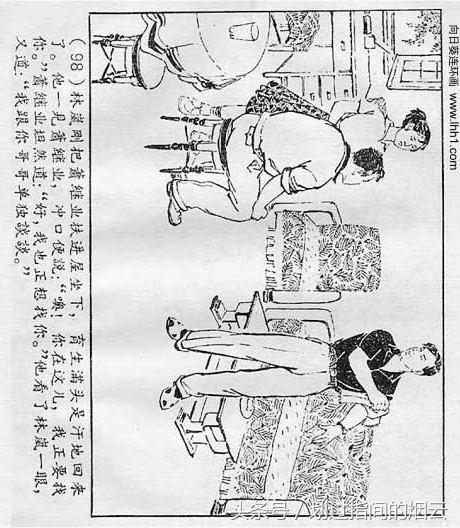 向日葵连环画 www.lhh1.com
（98）林嵐刚把萧继业扶进屋坐下，育生满头是汗地回来
了。他一见萧继业，冲口便説：“噢！你在这儿，我正要找
你。”萧继业坦然道：“好，我也正想找你。”他看了林嵐一眼，
又道：“我跟你哥哥单独談談。”
头条号 / 指间的烟云